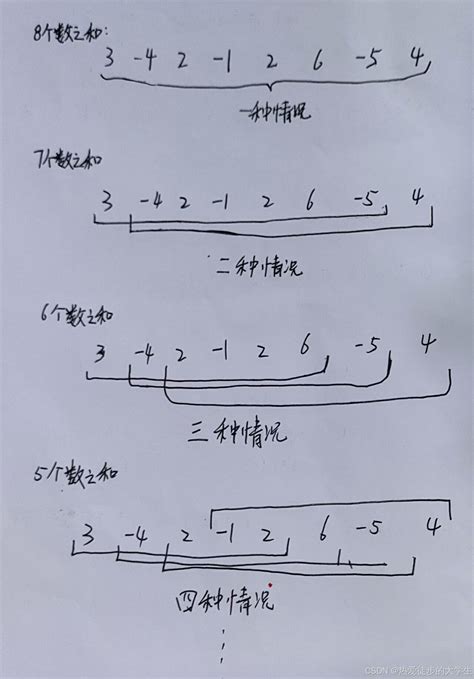 8个数之和:
3 -4 2 -1 2 6 -5 4
一种情况
7个数之和
3 -4 2 -1 2 6 -5 4
二种情况
6个数之和
3 -4 2 -1 2 6 -5 4
三种情况
5个数之和
3 -4 2 -1 2 6 -5 4
四种情况
CSDN @热爱徒步的大学生